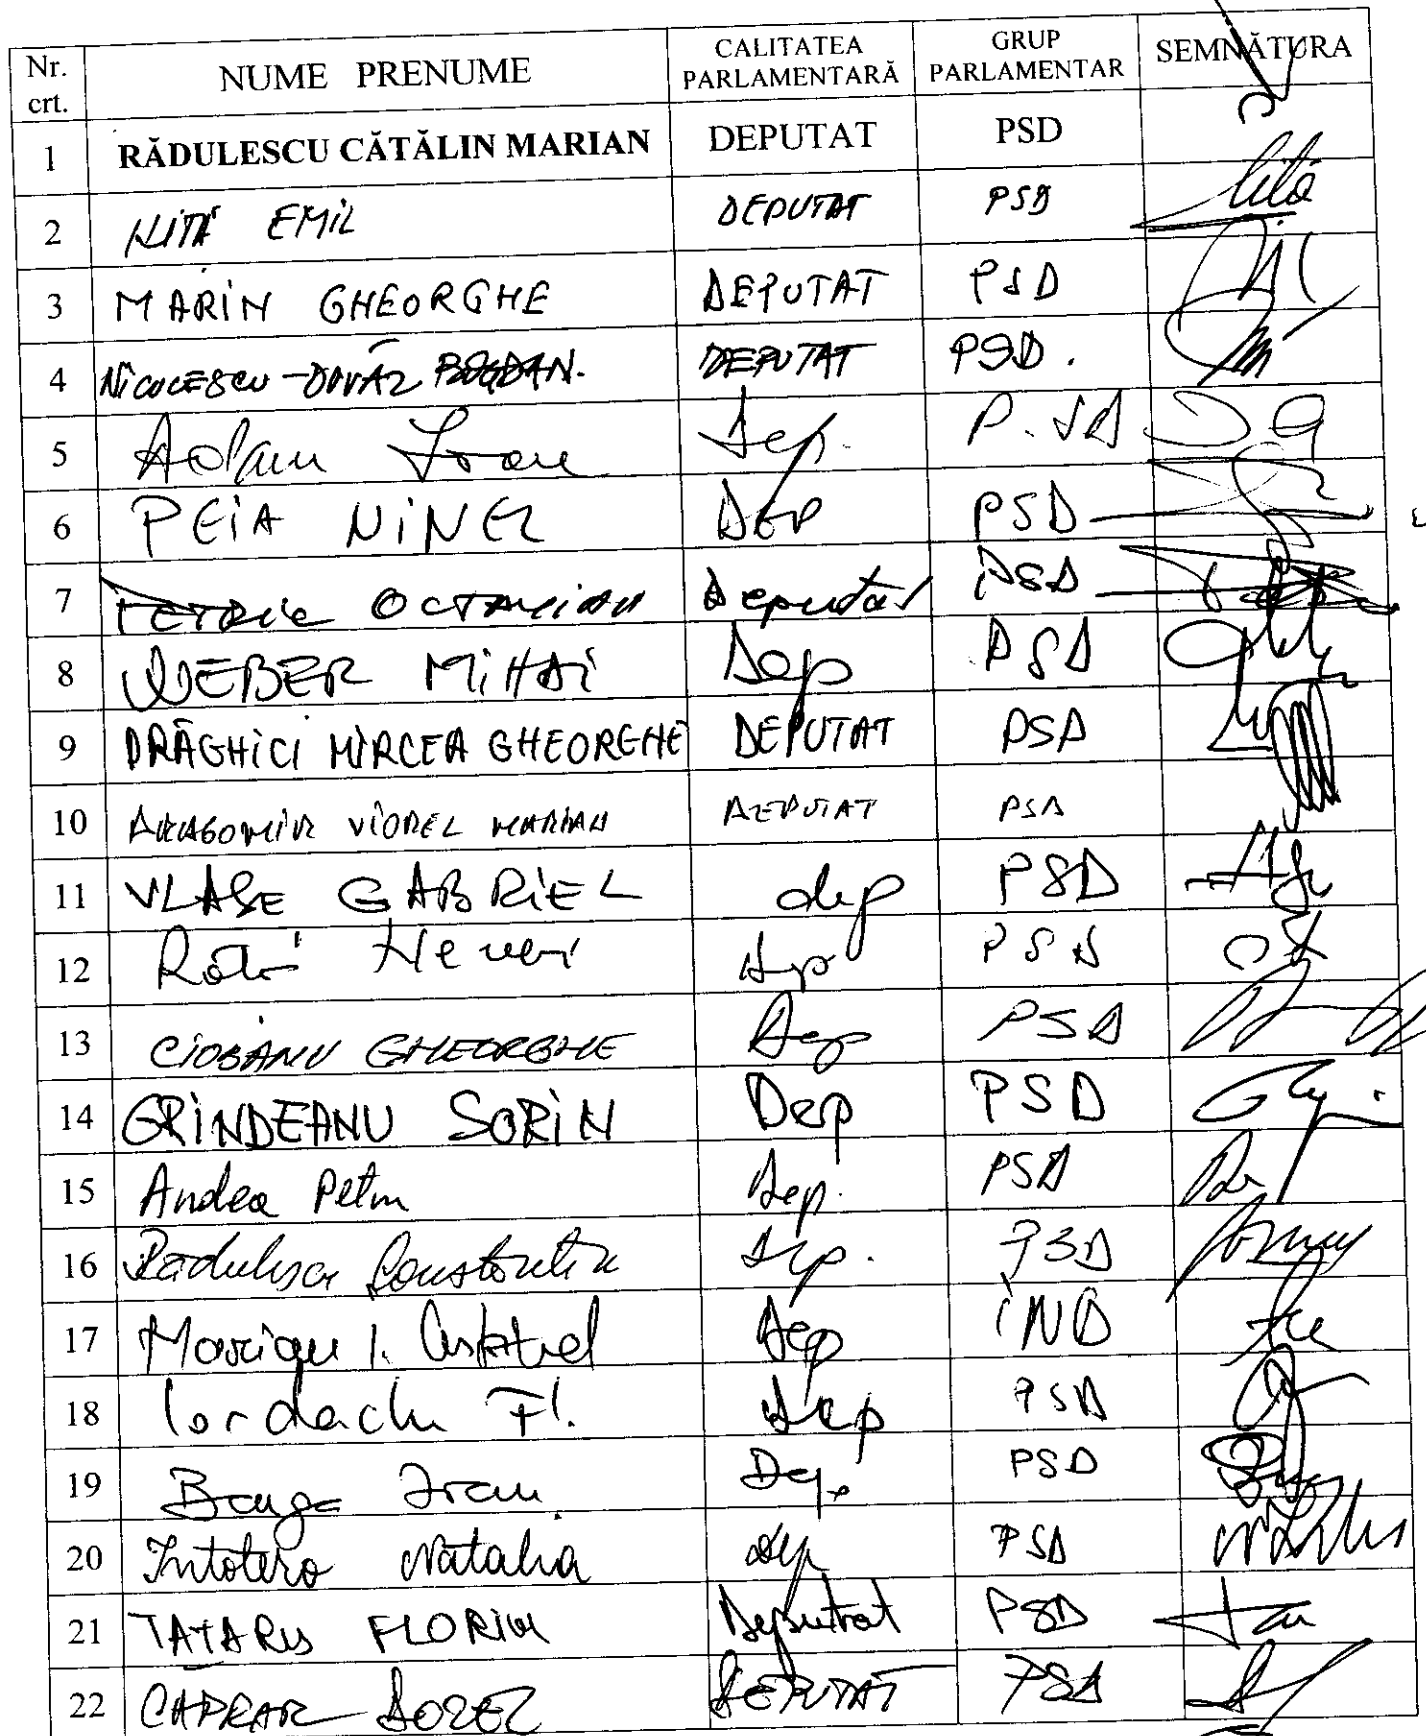 Nr. crt. NUME PRENUME CALITATEA PARLAMENTARĂ GRUP PARLAMENTAR SEMNĂTURA
1 RĂDULESCU CĂTĂLIN MARIAN DEPUTAT PSD
2 NIȚĂ EMIL DEPUTAT PSD
3 MARIN GHEORGHE DEPUTAT PSD
4 NICOLESCU-DUVĂZ BOGDAN. DEPUTAT PSD.
5 Adam Ioan Dep. P.SD
6 PEIA NINEL DEP PSD
7 PETRIC OCTAVIAN Deputat PSD
8 WEBER MIHAI Dep PSD
9 DRĂGHICI MIRCEA GHEORGHE DEPUTAT PSD
10 DRAGOMIR VIOREL MARIAN DEPUTAT PSD
11 VLASE GABRIEL dep PSD
12 Dep PSD
13 CIOBANU GHEORGHE Dep PSD
14 GRINDEANU SORIN Dep PSD
15 Andea Petru Dep. PSD
16 Radulescu Constantin Dep. PSD
17 Dep IND
18 Iordache Fl. Dep PSD
19 Banga Ioan Dep. PSD
20 Intotero Natalia dep PSD
21 TATARU FLORIN Deputat PSD
22 CAPRAR DOREL DEPUTAT PSD